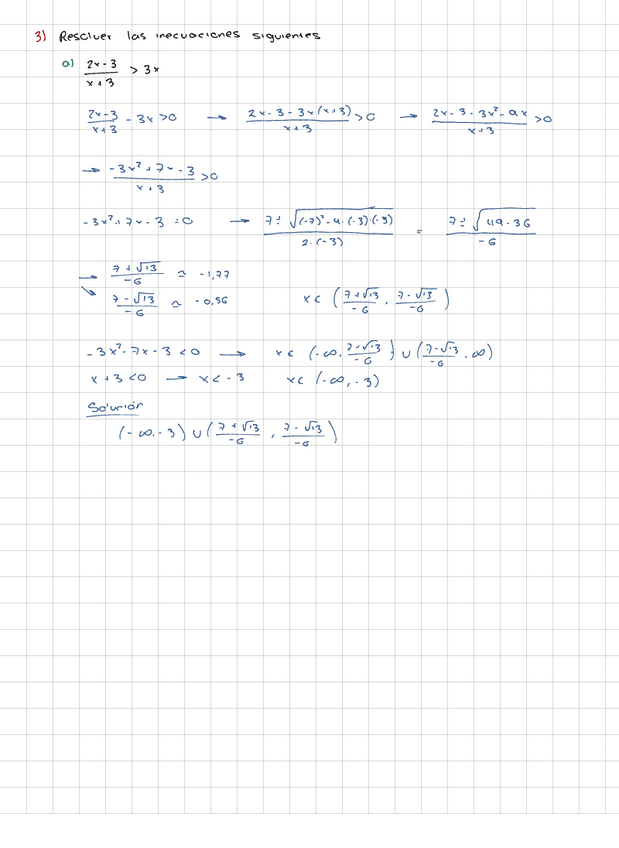 3) Resolver las inecuaciones siguientes
a) \frac{2x-3}{x+3} > 3x
\frac{2x-3}{x+3} - 3x > 0 → \frac{2x-3-3x(x+3)}{x+3} > 0 → \frac{2x-3-3x²-9x}{x+3} > 0
→ \frac{-3x²+7x-3}{x+3} > 0
-3x²+7x-3 = 0 → \frac{7 ± \sqrt{(-7)²-4·(-3)·(-3)}}{2·(-3)} = \frac{7 ± \sqrt{49-36}}{-6}
→ \frac{7+\sqrt{13}}{-6} ≃ -1,77
↘ \frac{7-\sqrt{13}}{-6} ≃ -0,56 x ∈ (\frac{7+\sqrt{13}}{-6}, \frac{7-\sqrt{13}}{-6})
-3x²-7x-3 < 0 → x ∈ (-∞, \frac{7+\sqrt{13}}{-6}) ∪ (\frac{7-\sqrt{13}}{-6}, ∞)
x+3 < 0 → x < -3 x ∈ (-∞, -3)
Solución
(-∞, -3) ∪ (\frac{7+\sqrt{13}}{-6}, \frac{7-\sqrt{13}}{-6})